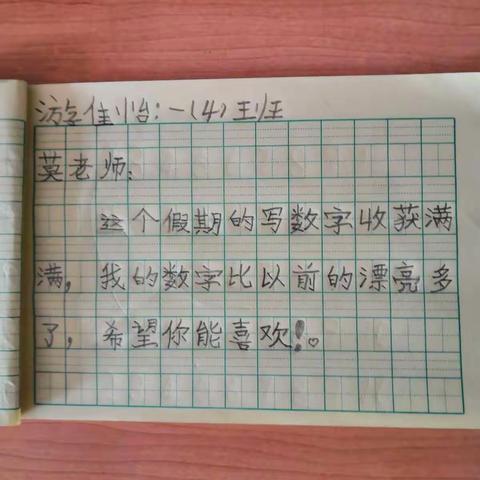 游佳怡:一(4)班
莫老师:
这个假期的写数字收获满
满,我的数字比以前的漂亮多
了,希望你能喜欢!。